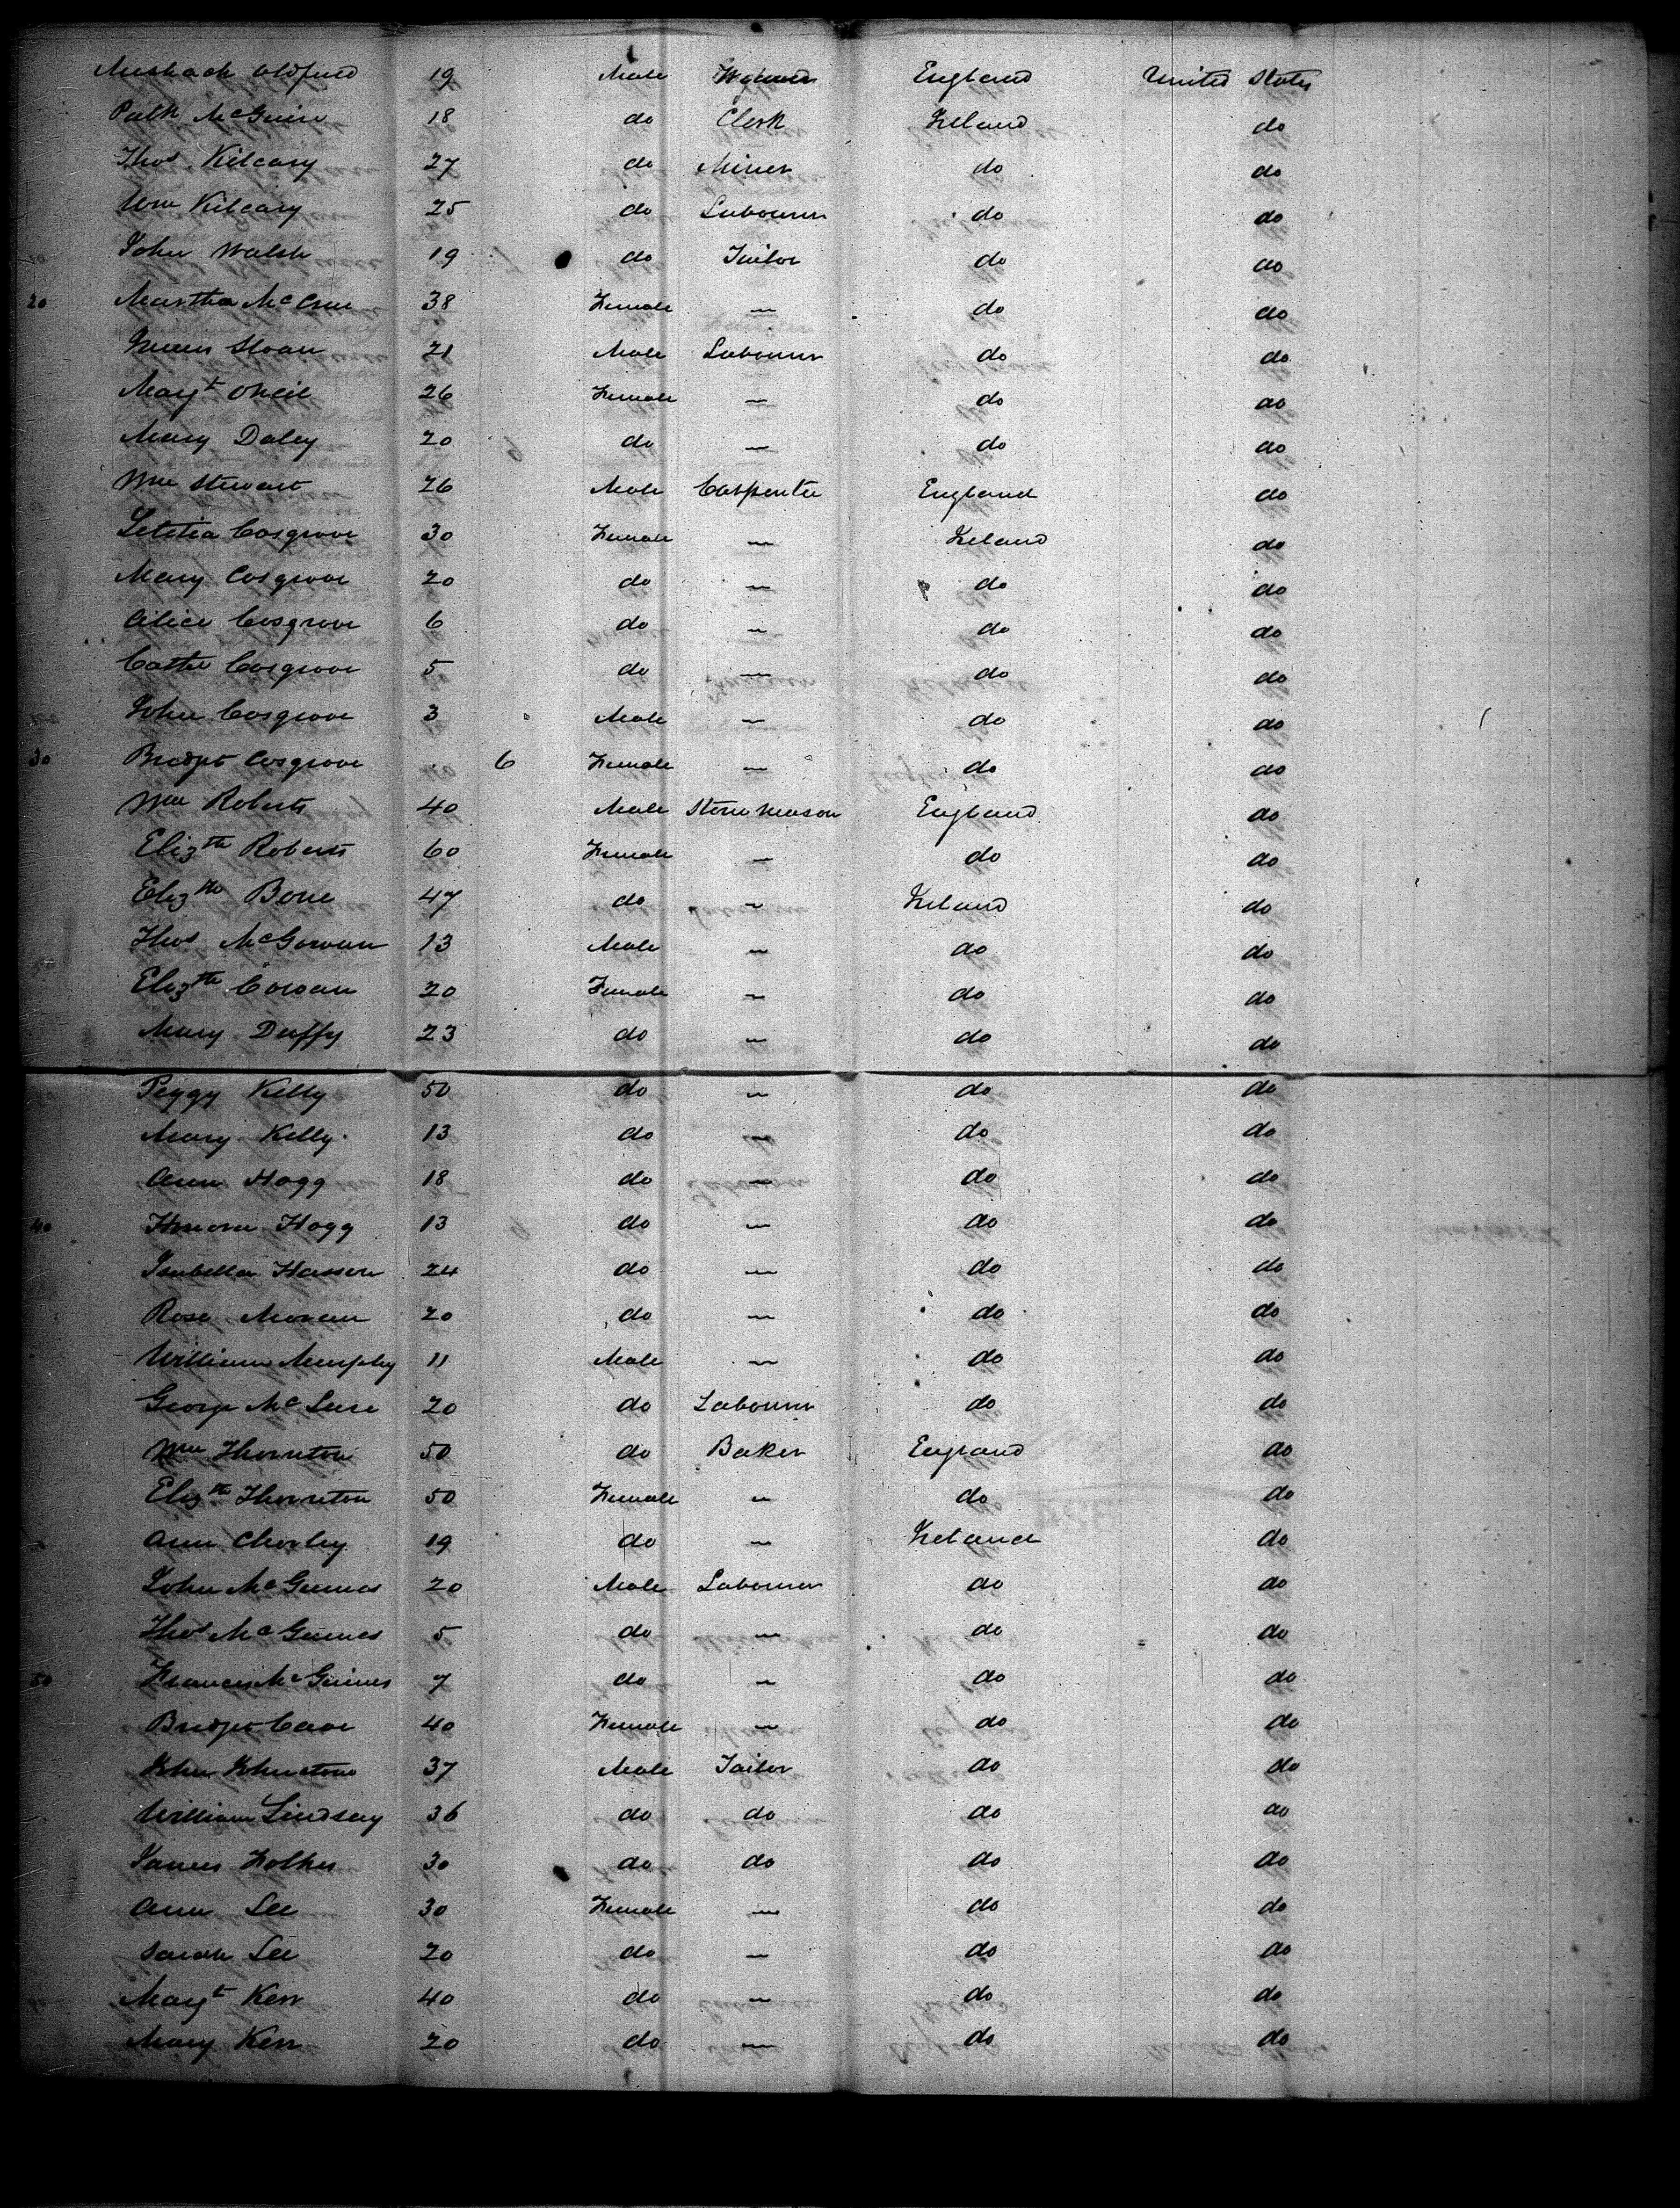 19 Male England United States
Patk McGuire 18 do Clerk Ireland do
Thos Kilcary 27 do Miner do do
Wm Kilcary 25 do Labourer do do
John Walsh 19 do Tailor do do
20 Martha McCrea 38 Female — do do
James Sloan 21 Male Labourer do do
Margt ONeil 26 Female — do do
Mary Daley 20 do — do do
Wm Stewart 26 Male Carpenter England do
Letitia Cosgrove 30 Female — Ireland do
Mary Cosgrove 20 do — do do
Alice Cosgrove 6 do — do do
Cathe Cosgrove 5 do — do do
John Cosgrove 3 Male — do do
30 Bridgt Cosgrove 6 Female — do do
Wm Roberts 40 Male Stone Mason England do
Elizth Roberts 60 Female — do do
Elizth Bone 47 do — Ireland do
Thos McGowan 13 Male — do do
Elizth Cowan 20 Female — do do
Mary Duffy 23 do — do do
Peggy Kelly 50 do — do do
Mary Kelly 13 do — do do
Ann Hogg 18 do — do do
40 Honora Hogg 13 do — do do
Isabella Hasson 24 do — do do
Rose Moran 20 do — do do
William Murphy 11 Male — do do
George McLure 20 do Labourer do do
Wm Thornton 50 do Baker England do
Elizth Thornton 50 Female — do do
Ann Chorley 19 do — Ireland do
John McGuines 20 Male Labourer do do
Thos McGuines 5 do — do do
50 Frances McGuines 7 do — do do
Bridgt Cave 40 Female — do do
John Johnstone 37 Male Tailor do do
William Lindsay 36 do do do do
James 30 do do do do
Ann Lee 30 Female — do do
Sarah Lee 20 do — do do
Margt Kerr 40 do — do do
Mary Kerr 20 do — do do